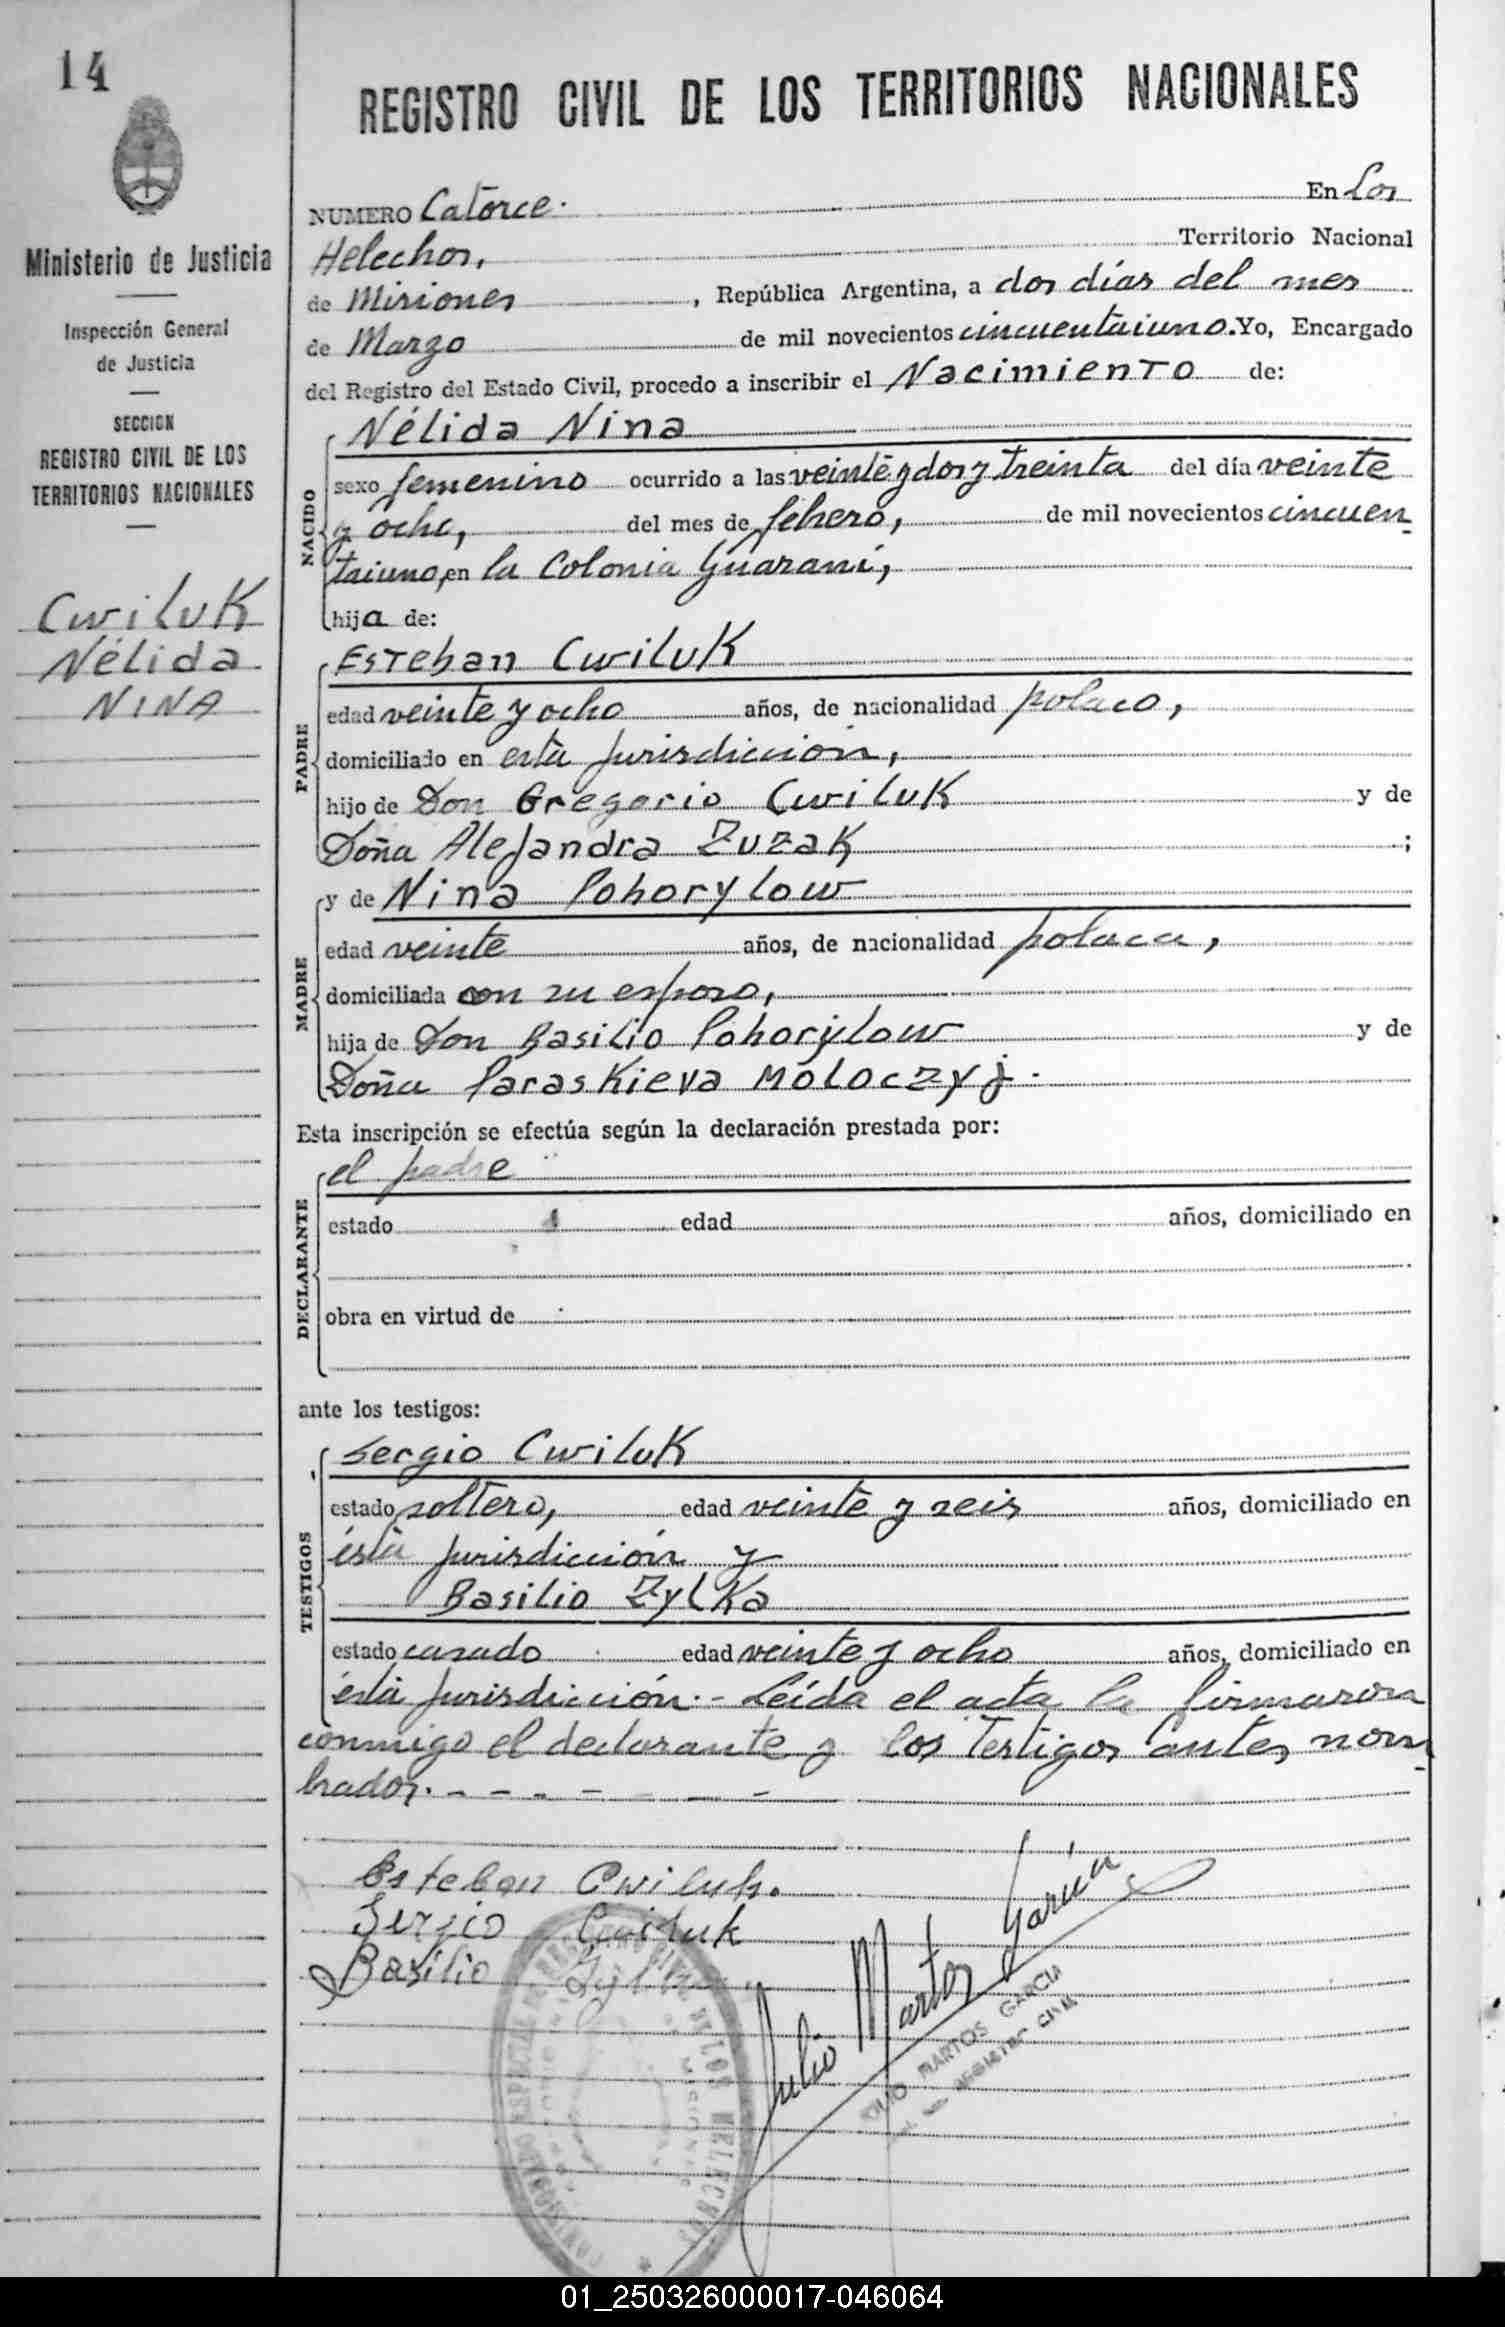 14
REGISTRO CIVIL DE LOS TERRITORIOS NACIONALES
Ministerio de Justicia
Inspección General
de Justicia
SECCION
REGISTRO CIVIL DE LOS
TERRITORIOS NACIONALES
Cwiluk
Nélida
NINA
NUMERO Catorce. En Los
Helechos, Territorio Nacional
de Misiones, República Argentina, a dos días del mes
de Marzo de mil novecientos cincuentaiuno. Yo, Encargado
del Registro del Estado Civil, procedo a inscribir el Nacimiento de:
NACIDO
Nélida Nina
sexo femenino ocurrido a las veinte y dos y treinta del día veinte
y ocho, del mes de febrero, de mil novecientos cincuen-
taiuno, en la Colonia Guaraní,
hija de:
PADRE
Esteban Cwiluk
edad veinte y ocho años, de nacionalidad polaco,
domiciliado en esta jurisdicción,
hijo de Don Gregorio Cwiluk y de
Doña Alejandra Zuzak ;
MADRE
y de Nina Pohorylow
edad veinte años, de nacionalidad polaca,
domiciliada con su esposo,
hija de Don Basilio Pohorylow y de
Doña Paraskieva Moloczyj.
Esta inscripción se efectúa según la declaración prestada por:
DECLARANTE
el padre
estado edad años, domiciliado en
obra en virtud de
ante los testigos:
TESTIGOS
Sergio Cwiluk
estado soltero, edad veinte y seis años, domiciliado en
ésta jurisdicción y
Basilio Zylka
estado casado edad veinte y ocho años, domiciliado en
ésta jurisdicción.- Leída el acta la firmaron
conmigo el declarante y los testigos antes nom-
brados.- - - - - - -
Esteban Cwiluk.
Sergio Cwiluk
Basilio Zylka
Julio Martos García
JULIO MARTOS GARCIA
REGISTRO CIVIL
01_250326000017-046064